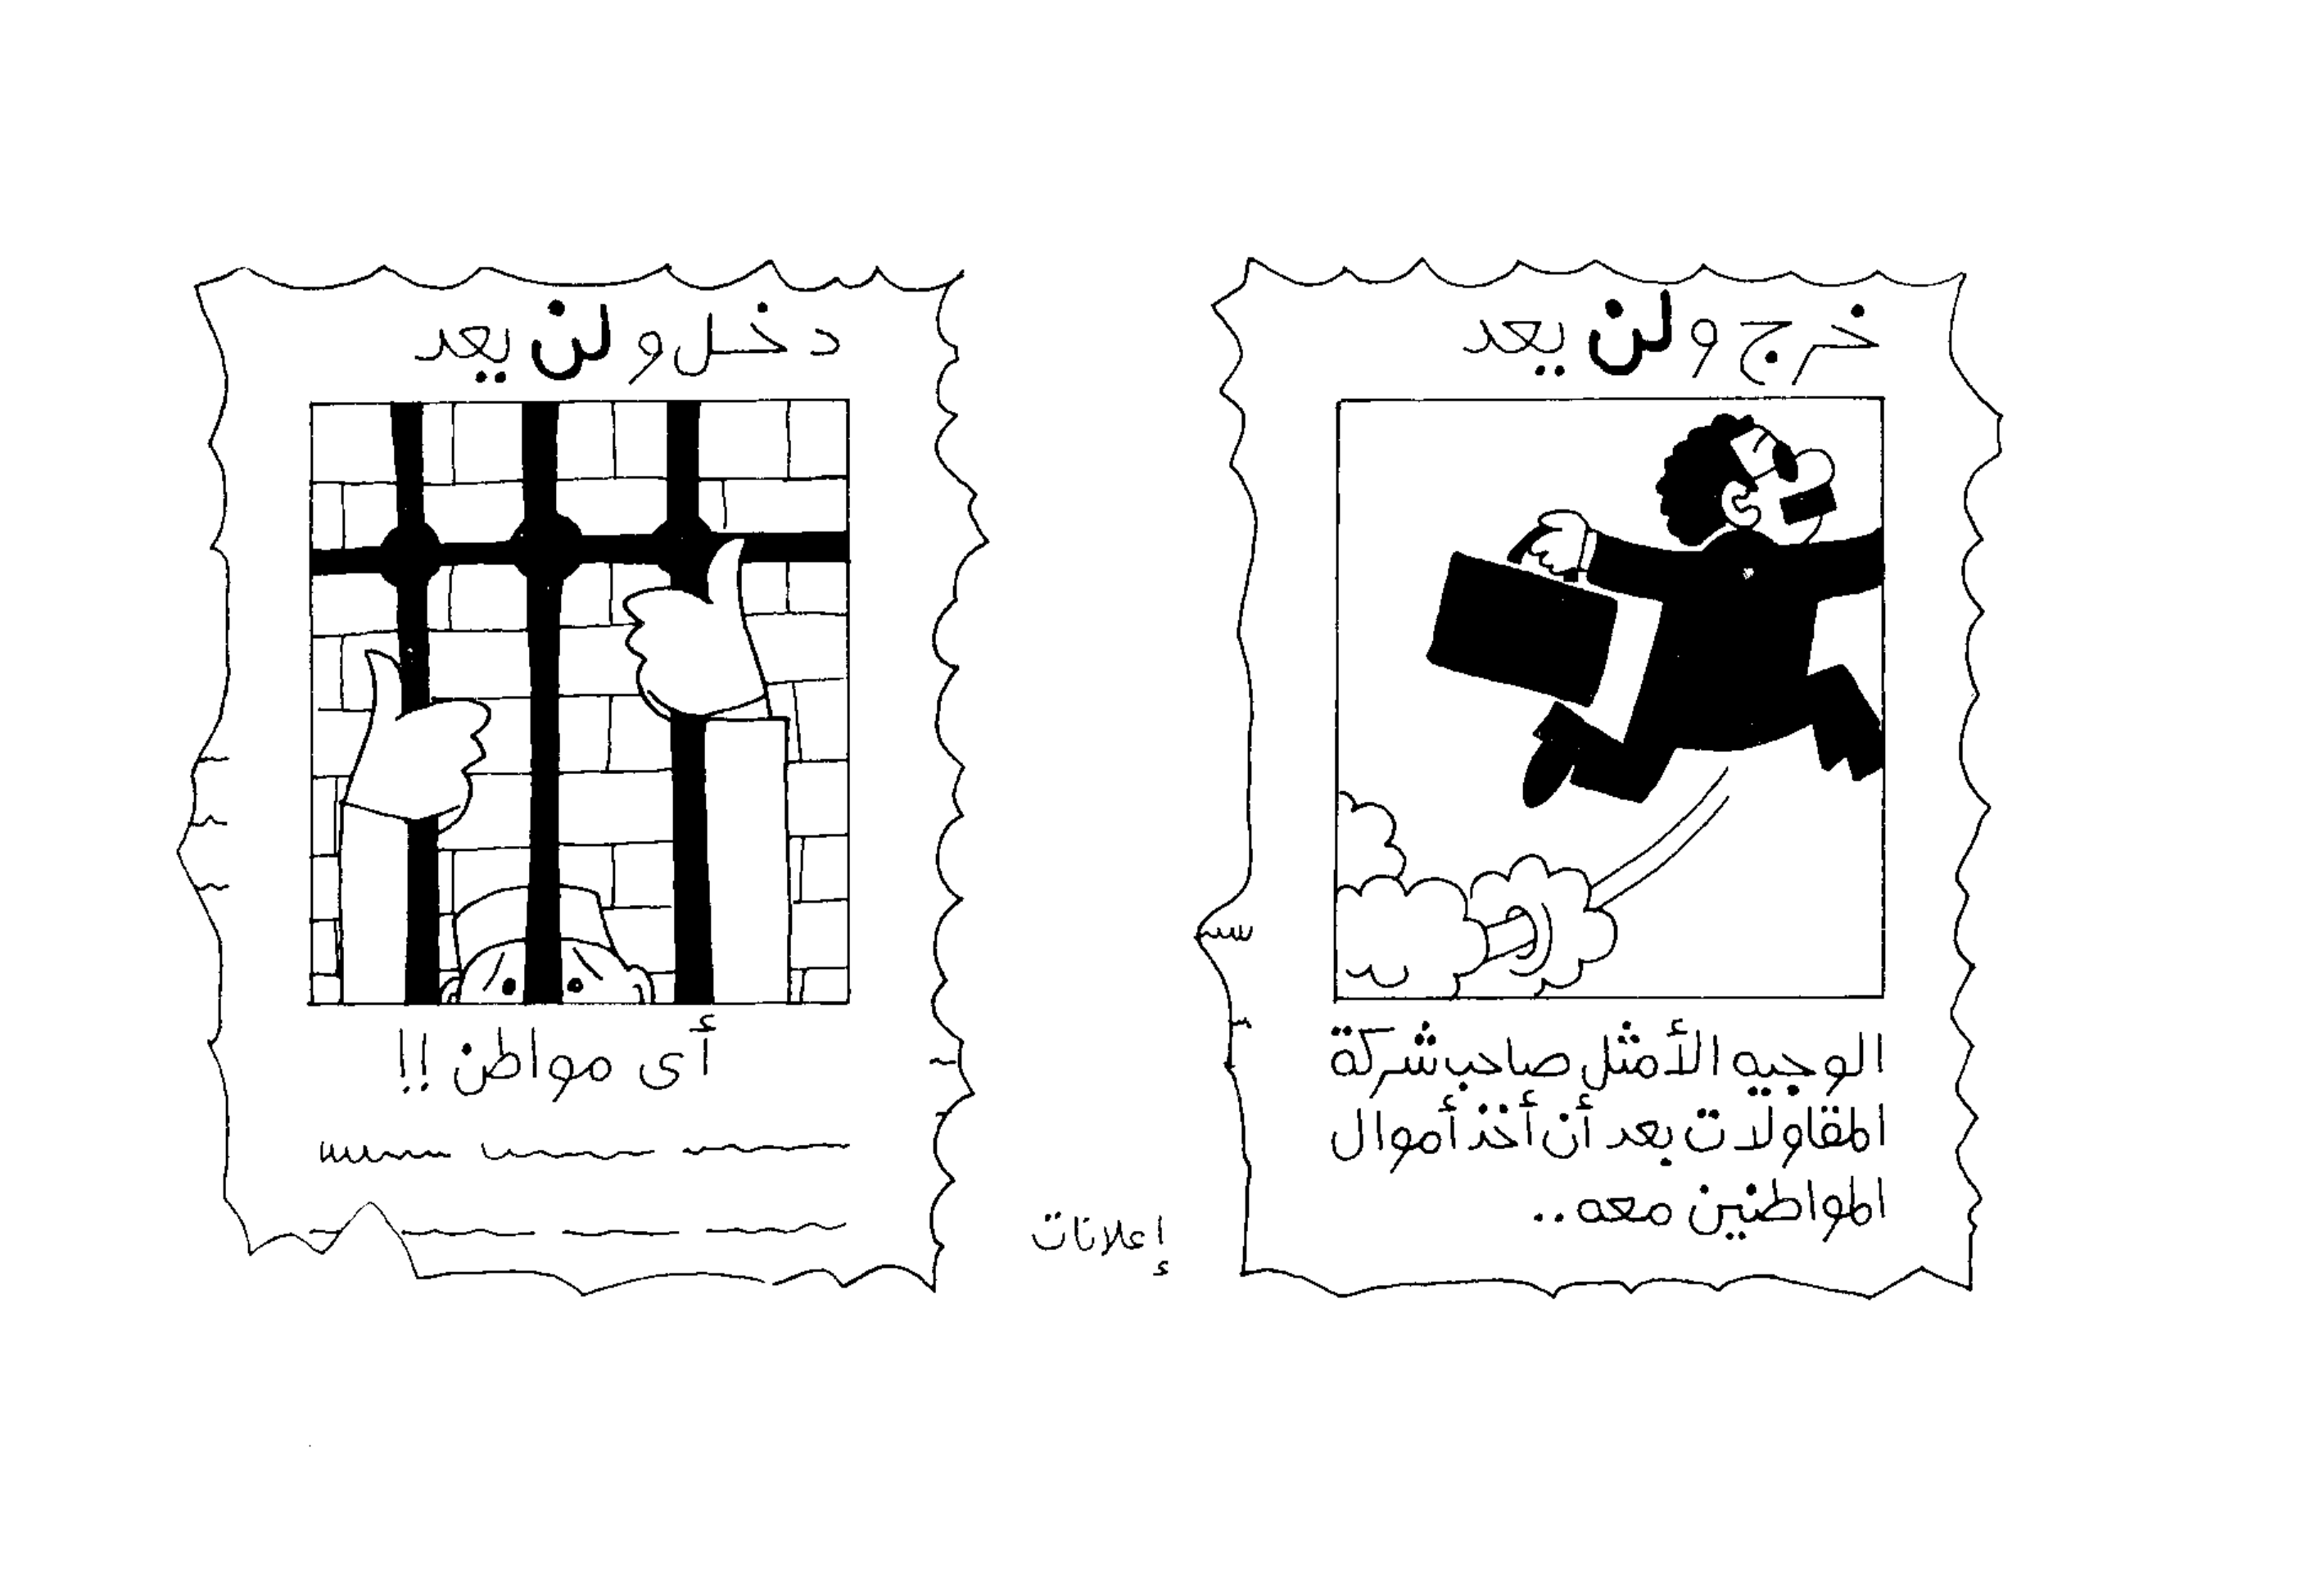 خرج ولن يعد
الوجيه الأمثل صاحب شركة
المقاولات بعد أن أخذ أموال
المواطنين معه..
دخل ولن يعد
أى مواطن !!
إعلانات